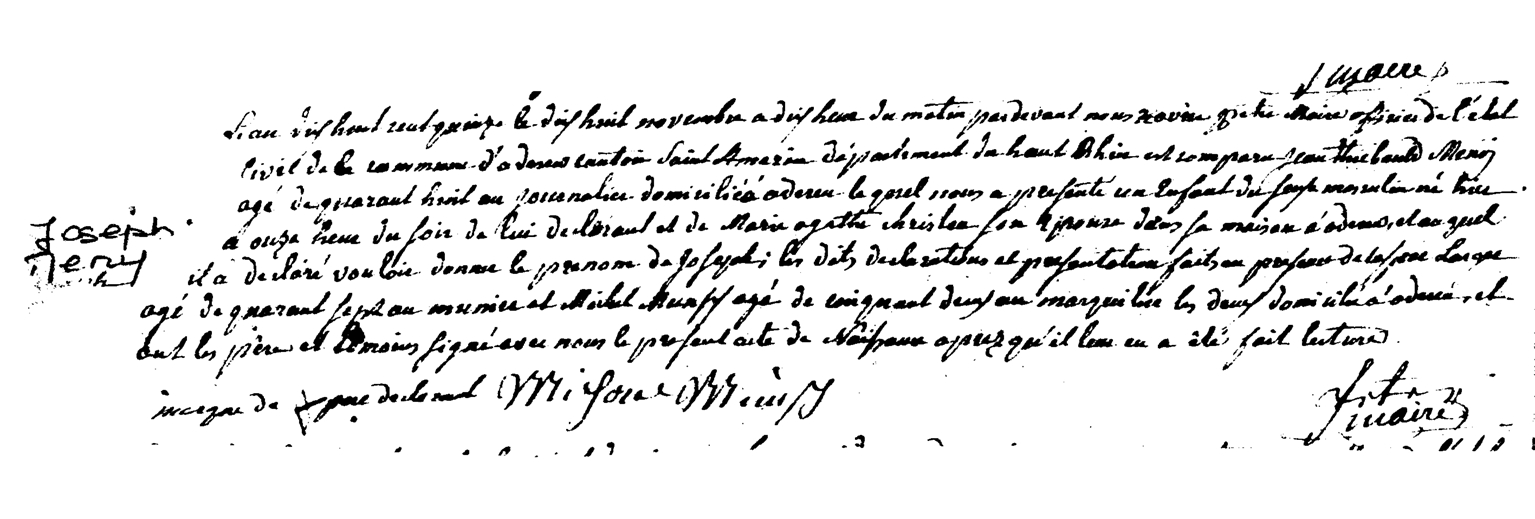 maire
L'an dix huit cent quinze le dix huit novembre a dix heure du matin pardevant nous Maire officier de l'état
civil de la commune d'oderen canton Saint Amarin département du haut Rhin est comparu jean thiebauld Meny
agé de quarant huit an journalier domicilié á oderen le quel nous a presenté un Enfant du sexe masculin né hier
a onze heure du soir de lui declarant et de Marie agathe christen son Epouse dans sa maison á oderen, et au quel
Joseph
Meny
il a declaré vouloir donner le prenom de Joseph; les dits declarations et presentation faits en presence de
agé de quarant sept an et Michel Munsch agé de cinquant deux an marguillier les deux domicilié á oderen, et
ont les père et témoins signé avec nous le present acte de Naissance aprez qu'il leur en a été fait lecture
marque de père declarant
maire